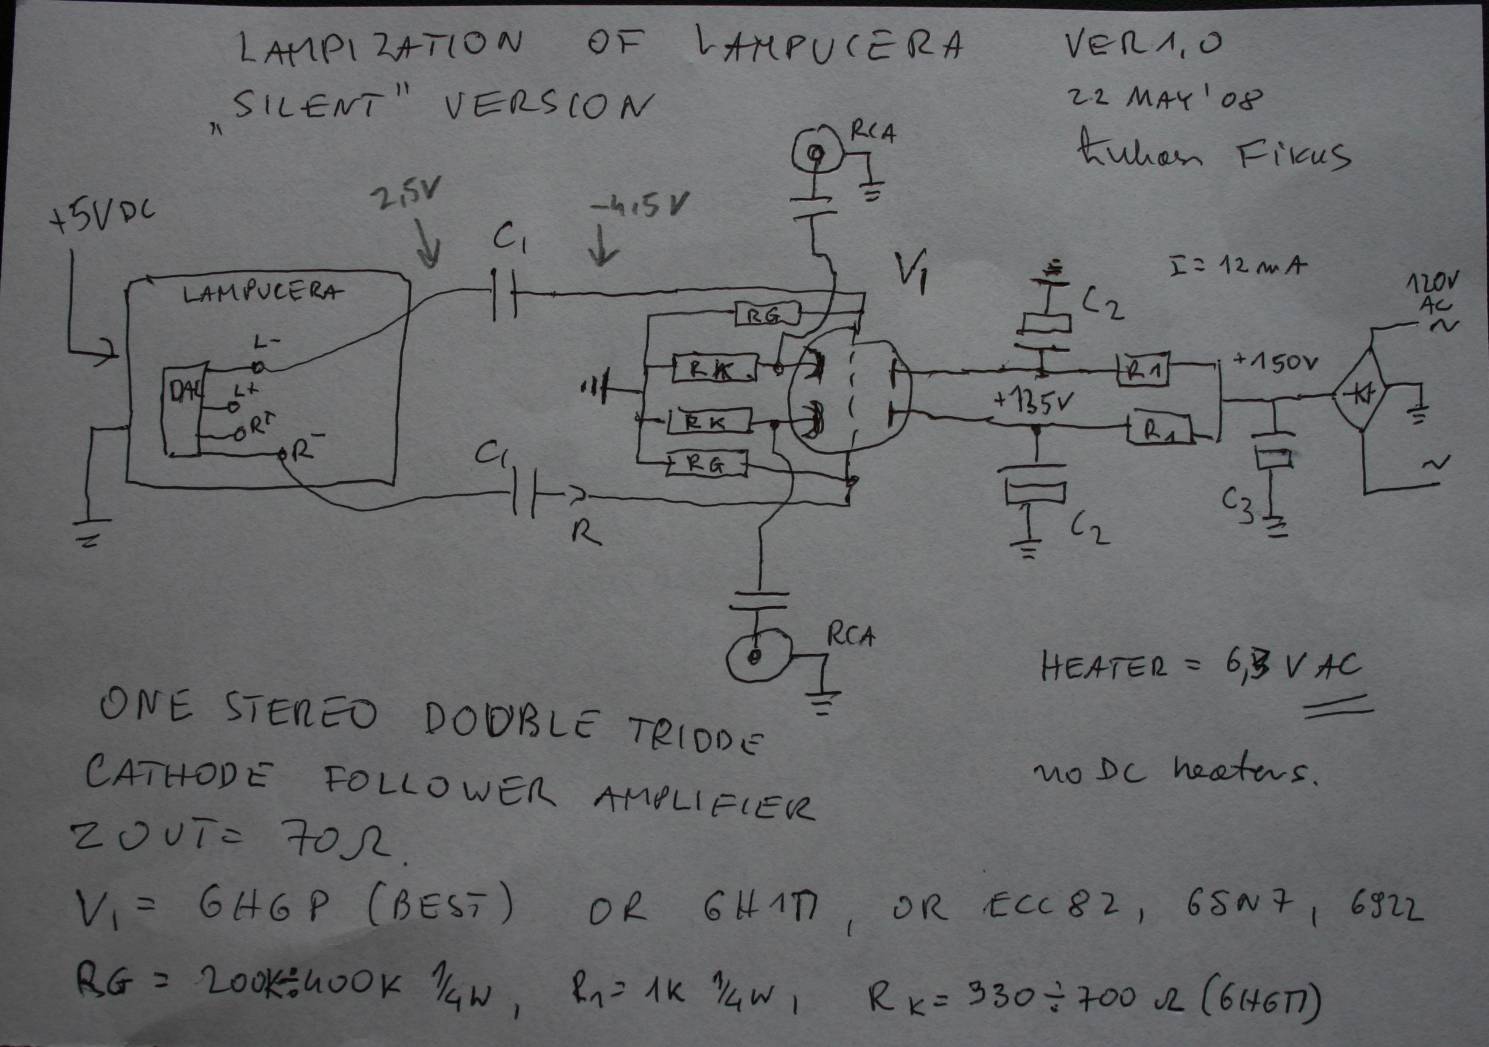 LAMPIZATION OF LAMPUCERA VER 1,0
„SILENT" VERSION 22 MAY '08
Fikus
RCA
+5V DC
2,5V
-4,5V
C1
V1
I = 12 mA
120V
AC
~
LAMPUCERA
C2
RG
L-
DAC
L+
R+
R-
RK
R1
+150V
+135V
RK
R1
RG
~
C1
R
C2
C3
RCA
HEATER = 6,3 V AC
no DC heaters.
ONE STEREO DOUBLE TRIODE
CATHODE FOLLOWER AMPLIFIER
ZOUT = 70Ω.
V1 = 6H6P (BEST) OR 6H1П, OR ECC82, 6SN7, 6922
RG = 200K÷400K 1/4W, R1 = 1K 1/4W, RK = 330÷700 Ω (6H6П)